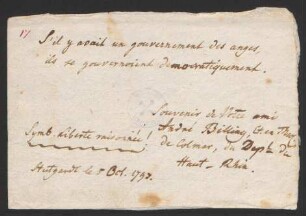 S'il y avait un gouvernement des anges,
ils se gouvernoient democratiquement.
Souvenir de Votre ami
André Billing, de Colmar, du Depte du
Haut-Rhin.
Symb. liberté
Stutgardt le 5 Oct. 1793.